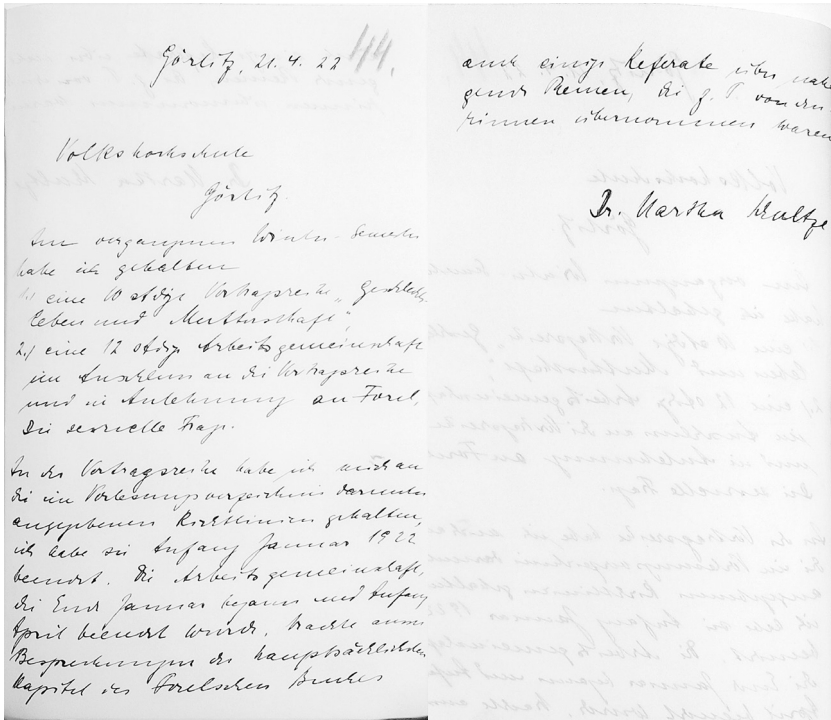 44.
Görlitz, 21.4.22
Volkshochschule
Görlitz.
Im vergangenen Winter-Semester
habe ich gehalten
1.) eine 10 stdge Vortragsreihe „Geschlechts
leben und Mutterschaft",
2.) eine 12 stdge Arbeitsgemeinschaft
im Anschluss an die Vortragsreihe
und in Anlehnung an Forel,
Die sexuelle Frage.
In der Vortragsreihe habe ich mich an
die im Vorlesungsverzeichnis darunter
angegebenen Richtlinien gehalten,
ich habe sie Anfang Januar 1922
beendet. Die Arbeitsgemeinschaft,
die Ende Januar begann und Anfang
April beendet wurde, brachte ausser
Besprechungen der hauptsächlichsten
Kapitel des Forelschen Buches
auch einige Referate über nahe
gende Themen, die z. T. von den
rinnen übernommen waren
Dr. Martha